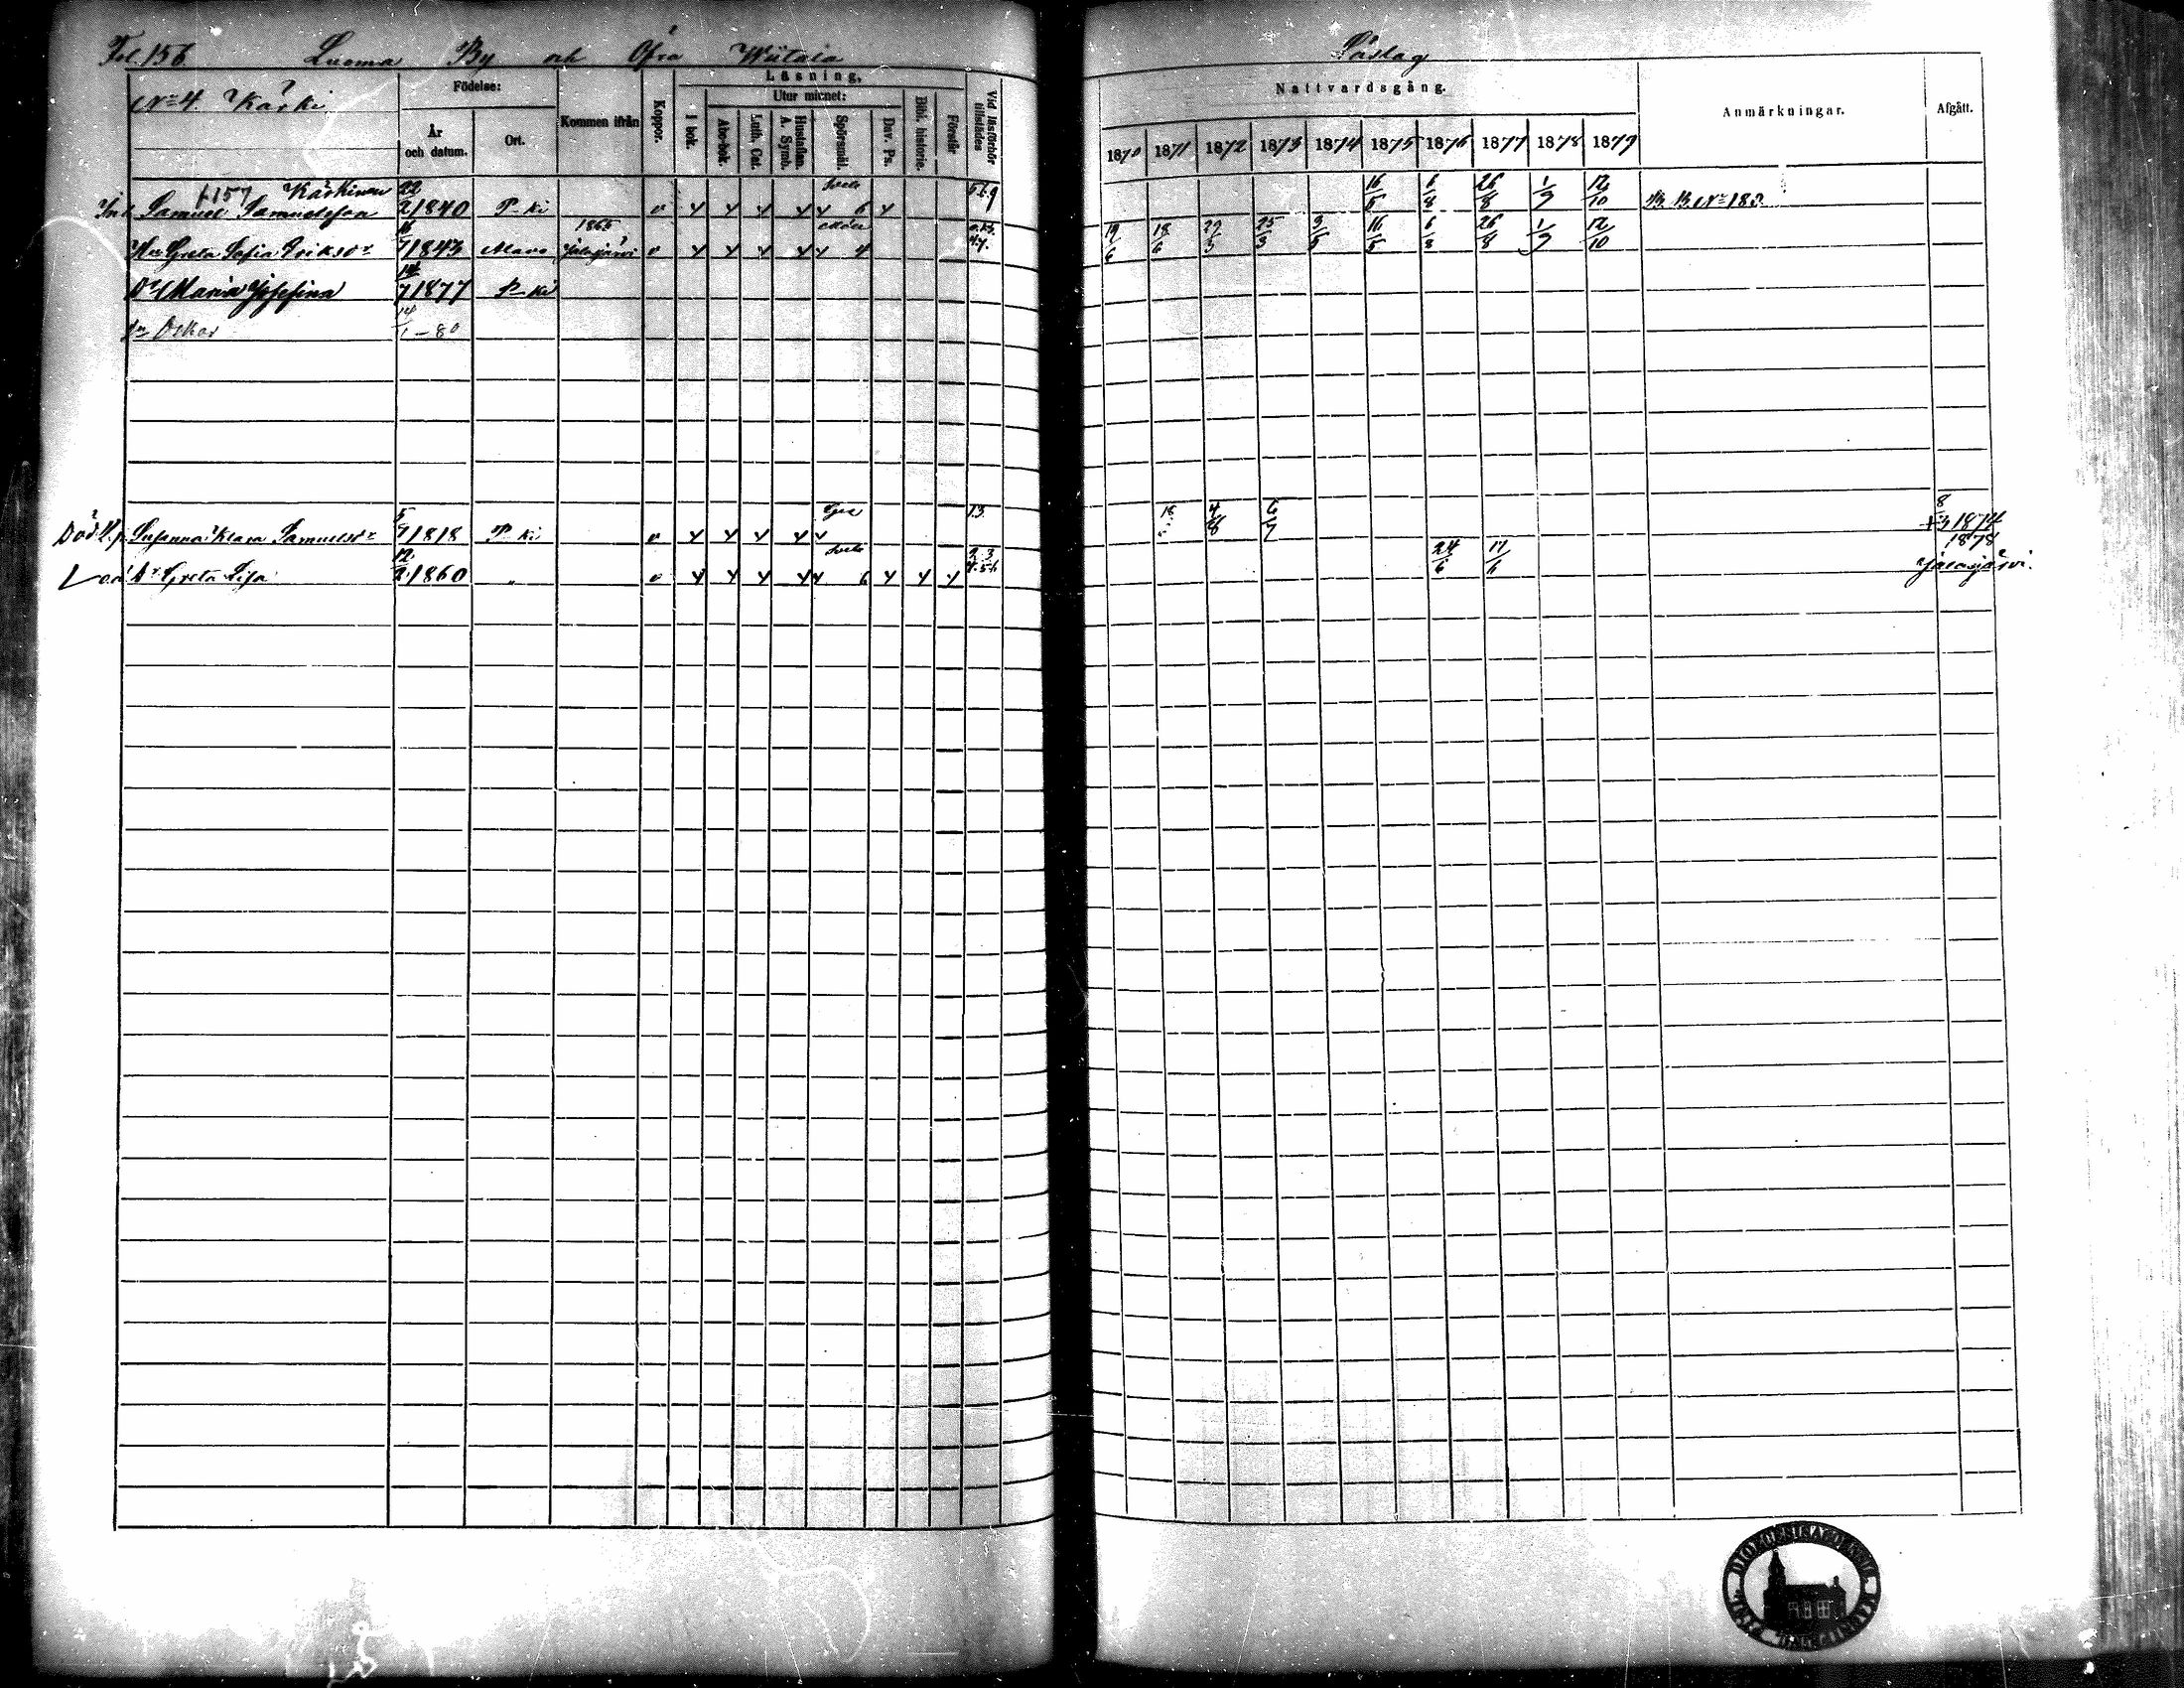 Fol. 156. Luoma By och Öfra Wiitala
Påslag
No 4. Kärki
Födelse:
År och datum.
Ort.
Kommen ifrån
Koppor.
Läsning.
I bok.
Utur minnet:
Abc-bok.
Luth. Cat.
Hustaflan. A. Symb.
Spörsmål
Dav. Ps.
Bibl. historie.
Förstår
Vid läsförhör tillstädes
Nattvardsgång.
1870 1871 1872 1873 1874 1875 1876 1877 1878 1879
Anmärkningar.
Afgått.
f.157 Kärkinen 22
Samuel Samuelsson 2 1840 P-ki v 6 16/5 6/8 26/8 1/9 12/10
16 1865
Hu Greta Sofia Eriksdr 7 1843 Alavo Jalasjärvi v 4 19/6 18/6 3/5 16/5 6/8 26/8 1/9 12/10
14
Dr Maria Josefina 7 1877 P-ki
14
Sn Oskar 1 - 80
5 13. 8
Susanna Klara Samuelsdr 9 1818 P-ki v 4/8 6/7 +3 1874
12 1878
Dr Greta Lisa 2 1860 " v 6 24/6 17/6 Jalasjärvi.